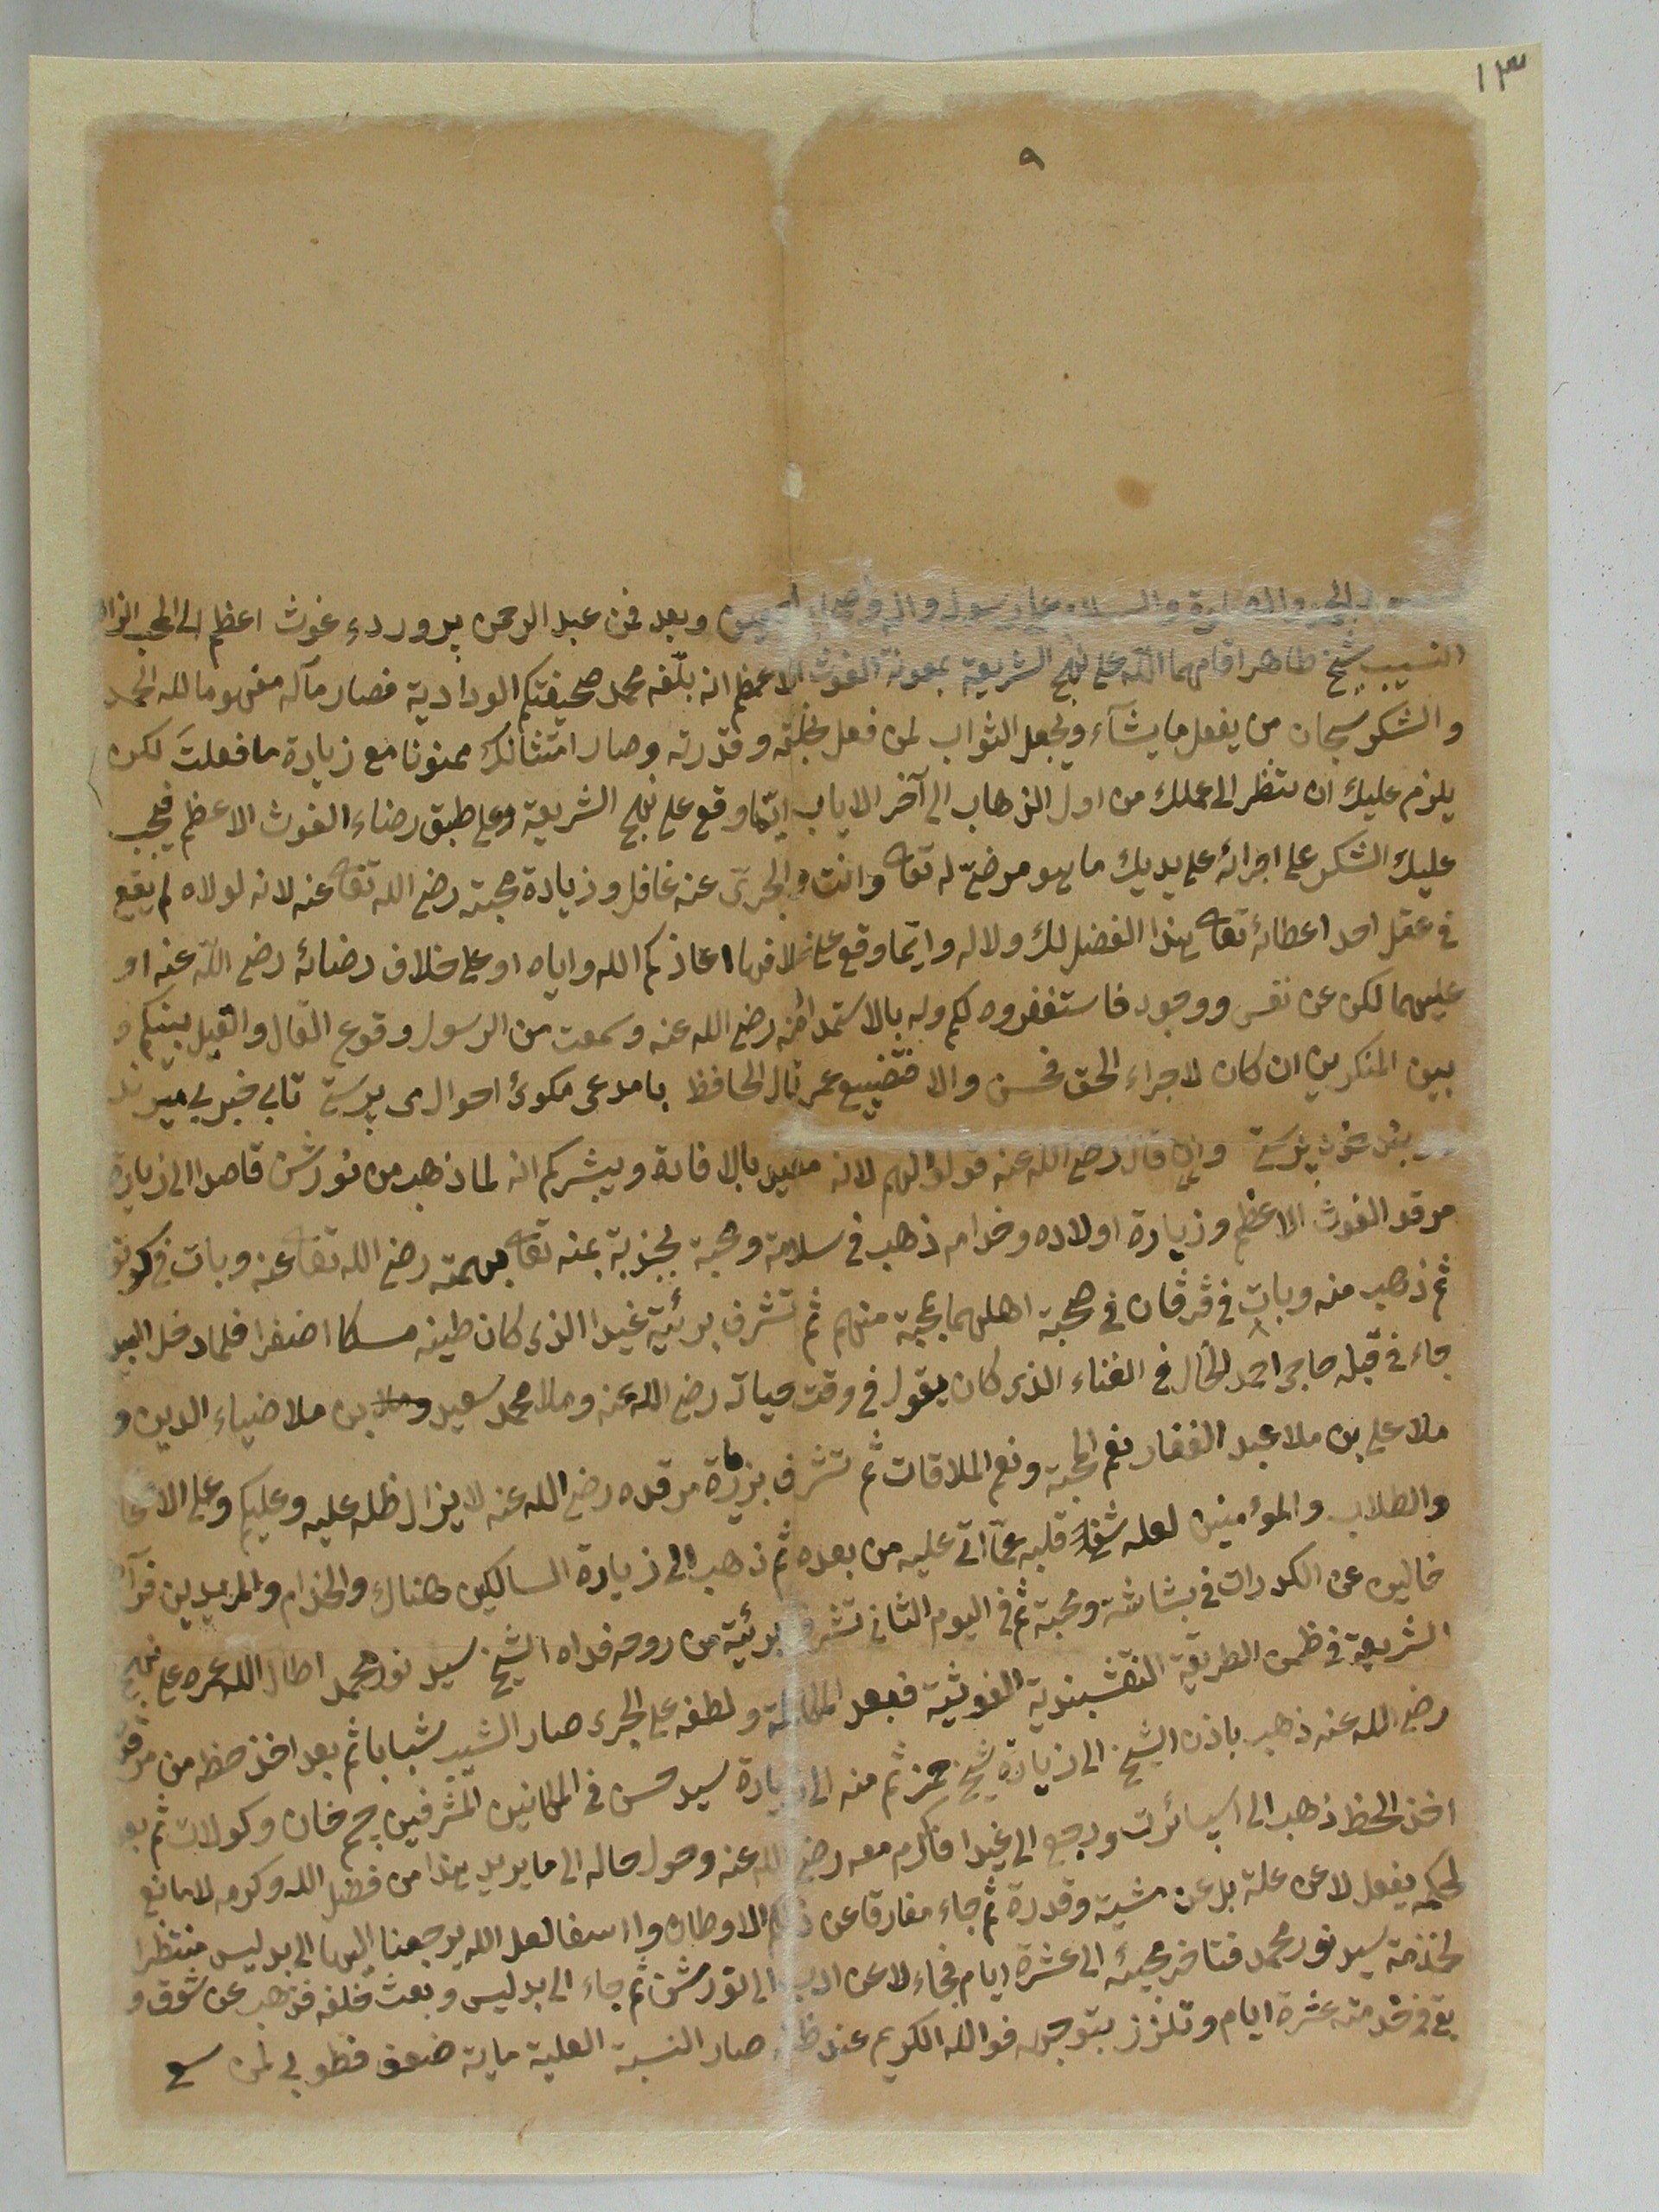 ١٣
٩
والصلوة والسلام على رسوله وآله وصحبه اجمعين وبعد فمن عبد الرحمن پروردهء غوث اعظم الى المحب
النسيب شيخ طاهر اقامهما الله على نهج الشريعة بمعونة الغوث الاعظم انه بلّغه محمد صحيفتكم الودادية فصار مآله مفهوما لله الحمد
والشكر سبحان من يفعل ما يشآء ويجعل الثواب لمن فعل بخلقه وقدرته وصار امتثالك ممنونا مع زيادة ما فعلت لكن
يلزم عليك ان تنظر الى عملك من اول الذهاب الى آخر الاياب ايّما وقع على نهج الشريعة وعلى طبق رضاء الغوث الاعظم فيجب
عليك الشكر على اجرائه على يديك ما هو مرضىّ له تعالى وانت والجرى عنه غافل وزيادة محبته رضى الله تعالى عنه لانه لولاه لم يقع
فى عقل احد اعطائه تعالى هذا الفضل لك ولا له وايّما وقع على خلافها اعاذكم الله واياه او على خلاف رضائه رضى الله عنه او
عليهما لكن عن نفس ووجود فاستغفروه لكم وله بالاستمداد منه رضى الله عنه وسمعت من الرسول وقوع القال والقيل بينكم و
بين المنكرين ان كان لاجراء الحق فحسن والا فتضييع عمر قال الحافظ با مدعى مكوئ احوال مى پرستى تا بى خبر بى ميرند
وان قال رضى الله عنه قولوا لهم لانه مفيد بالافادة ويبشركم انه لما ذهب من نورشين قاصدا الى زيارة
مرقد الغوث الاعظم وزيارة اولاده وخدامه ذهب فى سلامة ومحبة بجذبة بمنه تعالى بهمته رضى الله تعالى عنه وبات فى
ثم ذهب منه وبات فى فرقان فى صحبة اهلهما بمحبة منهم ثم تشرف برئية غيدا الذى كان طينه مسكا اصفرا فلما دخل اليها
جاء فى قبله حاجى احمد الخال فى الفناء الذى كان يقول فى وقت حياته رضى الله عنه وملا محمد سعيد وملا بن ملا ضياء الدين و
ملا على بن ملا عبد الغفار نعم المحبة ونعم الملاقات ثم تشرف بزيارة مرقده رضى الله عنه لا يزال ظله عليه وعليكم وعلى
والطلاب والمؤمنين لعله شفاء قلبه عمّا اتى عليه من بعده ثم ذهب الى زيارة السالكين هناك والخدام والمريدين
خالين عن الكدرات فى بشاشة ومحبة ثم فى اليوم الثانى تشرف برئية من روحه فداه الشيخ سيد نور محمد اطال الله عمره على نهج
الشريعة فى ظمن الطريقة النقشبندية الغوثية فبعد المكالمة ولطفه على الجرى صار الشيب شبابا ثم بعد اخذ حظه من مرقده
رضى الله عنه ذهب باذن الشيخ الى زيارة شيخ حمز ثم منه الى زيارة سيد حسن فى المكانين المشرفين چم خان وكولات ثم بعد
اخذ الحظ ذهب الى اسپائرت ورجع الى غيدا فاكرم معه رضى الله عنه وحول حاله الى ما يريد هذا من فضل الله وكرمه لا مانع
لحكمه يفعل لا عن علة بل عن مشية وقدرة ثم جاء مفارقا عن تلكم الاوطان وا اسفا لعل الله يرجعنا اليها الى بدليس منتظرا
لخدمة سيد نور محمد فتاخر مجيئه الى عشرة ايام فجاء لا عن الادب الى نورشين ثم جاء الى بدليس وبعث خلفه فذهب عن شوق و
بقى فى خدمته عشرة ايام وتلذذ بتوجهه فوالله الكريم عند صار النسبة العلية ماية ضعف فطوبى لمن